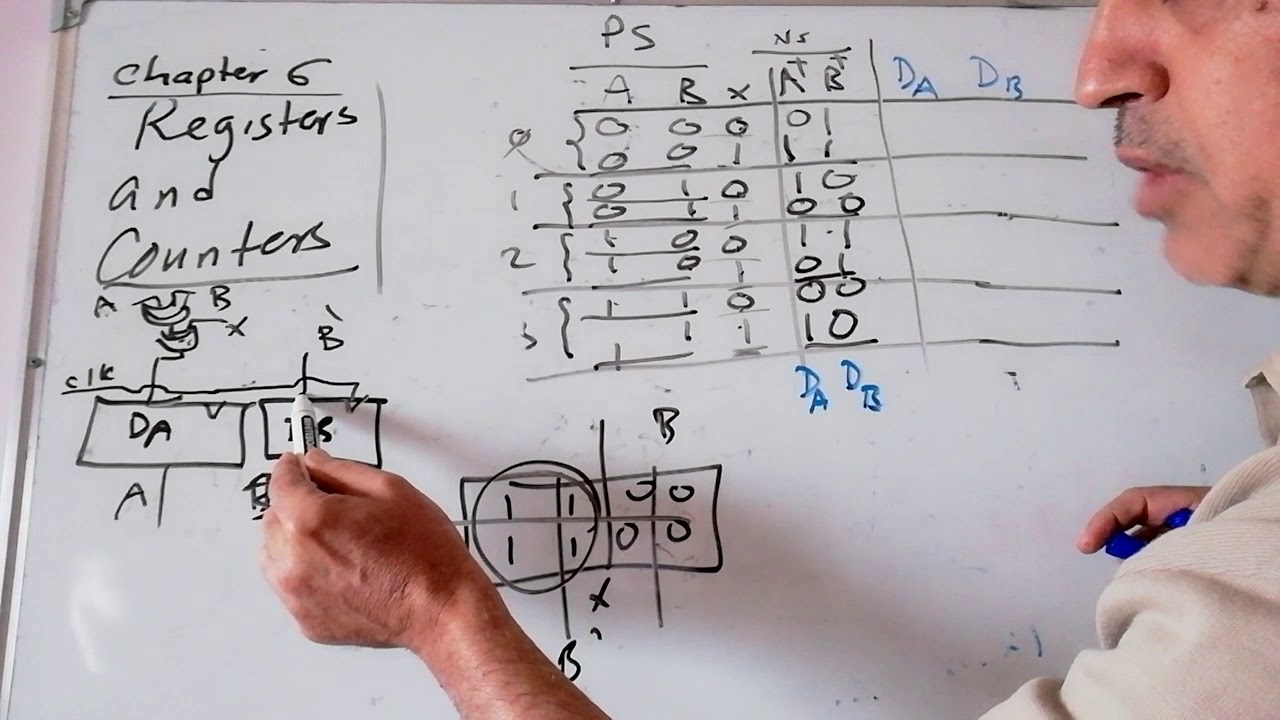 Chapter 6
Registers
and
Counters
PS NS
A B X A⁺ B⁺ D_A D_B
0 0 0 0 0 1
0 0 1 1 1
1 0 1 0 1 0
0 1 1 0 0
2 1 0 0 1 1
1 0 1 0 1
3 1 1 0 0 0
1 1 1 1 0
D_A D_B
A B
X
B'
clk
D_A
A
B
1 1 0 0
1 1 0 0
X
B